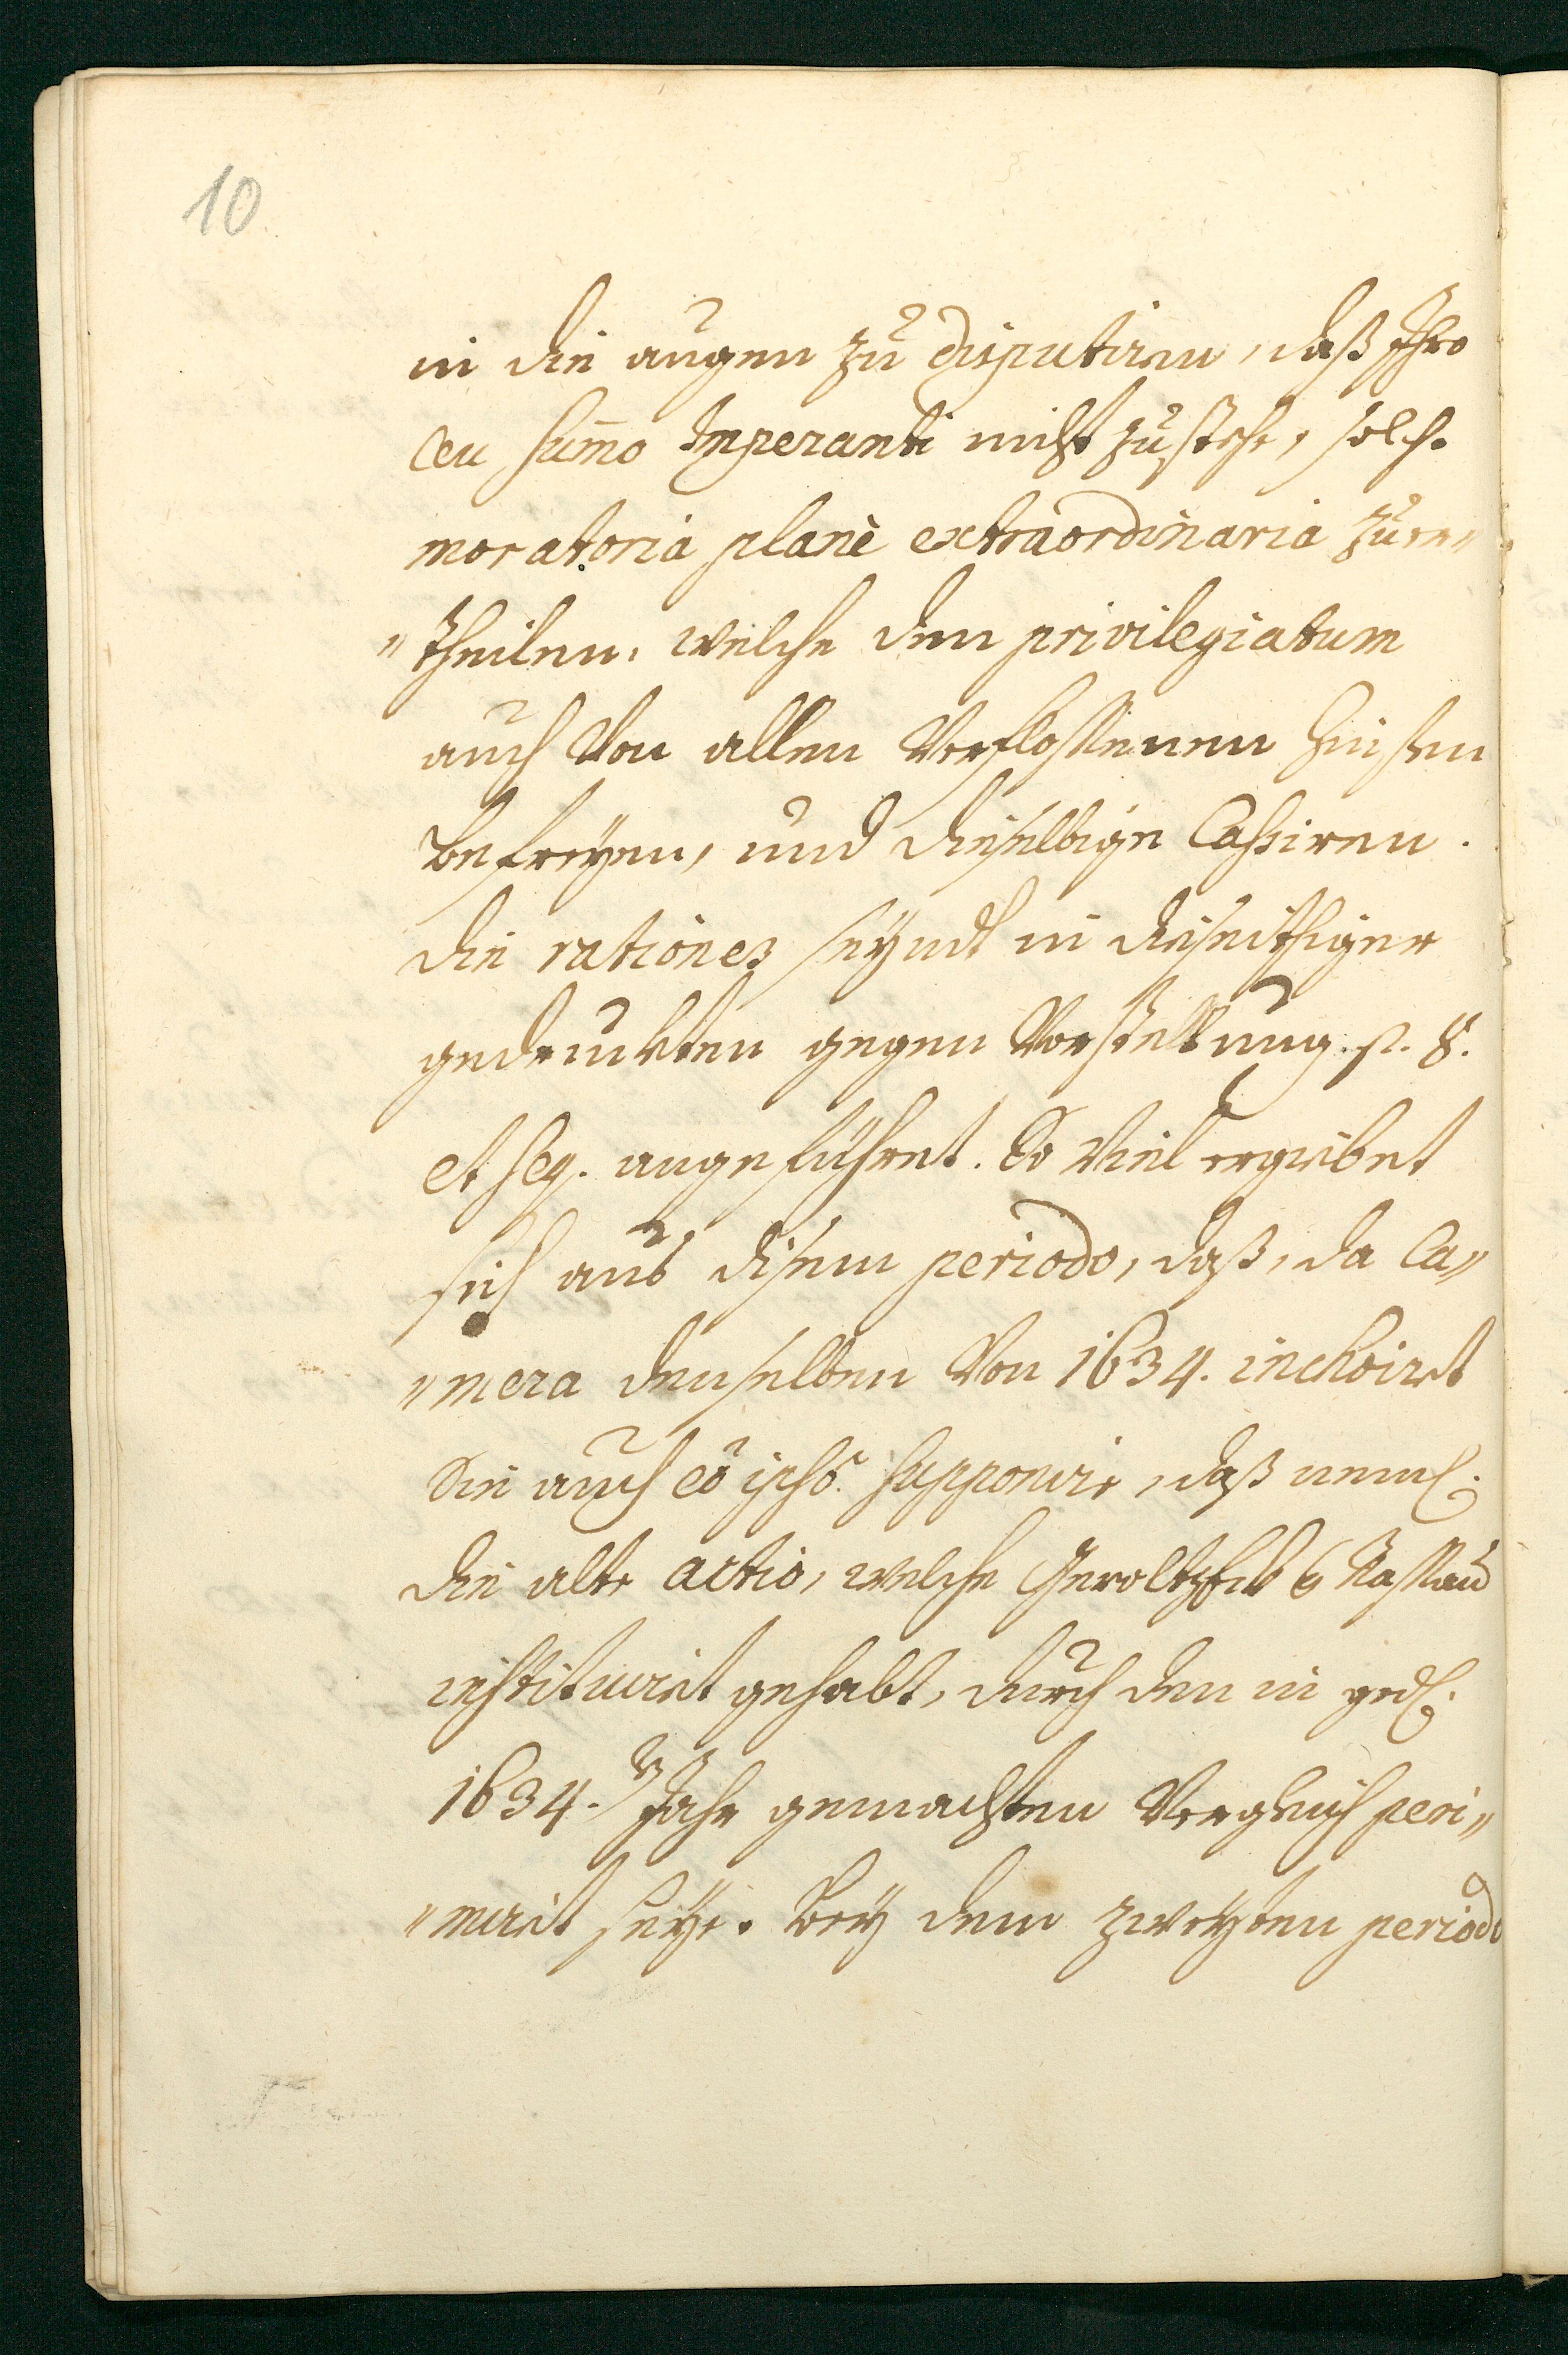 10
in die augen zu disputiren, daß Ihro
ceu sum̄o Imperanti nicht zustehe, solche
moratoria planè extraordinaria zu er„
„theilen, welche den privilegiatum
auch von allen verflossenen Zinßen
befreyen, und dieselbige cassiren.
die rationes seyndt in dißeithiger
gedruckten gegen Vorstellung p. 8.
et seq. angeführet. So viel ergiebet
sich aus disem periodo, daß, da Ca„
„mera denselben von 1634. inchoirt
Sie auch eo ipso supponire, daß neml.
die alte actio, welche Geroltzeck Nassau
instituirt gehabt, durch den in ged.
1634.r Jahr gemachten Vergleich peri„
„mirt seye. Bey dem zweyten periodo